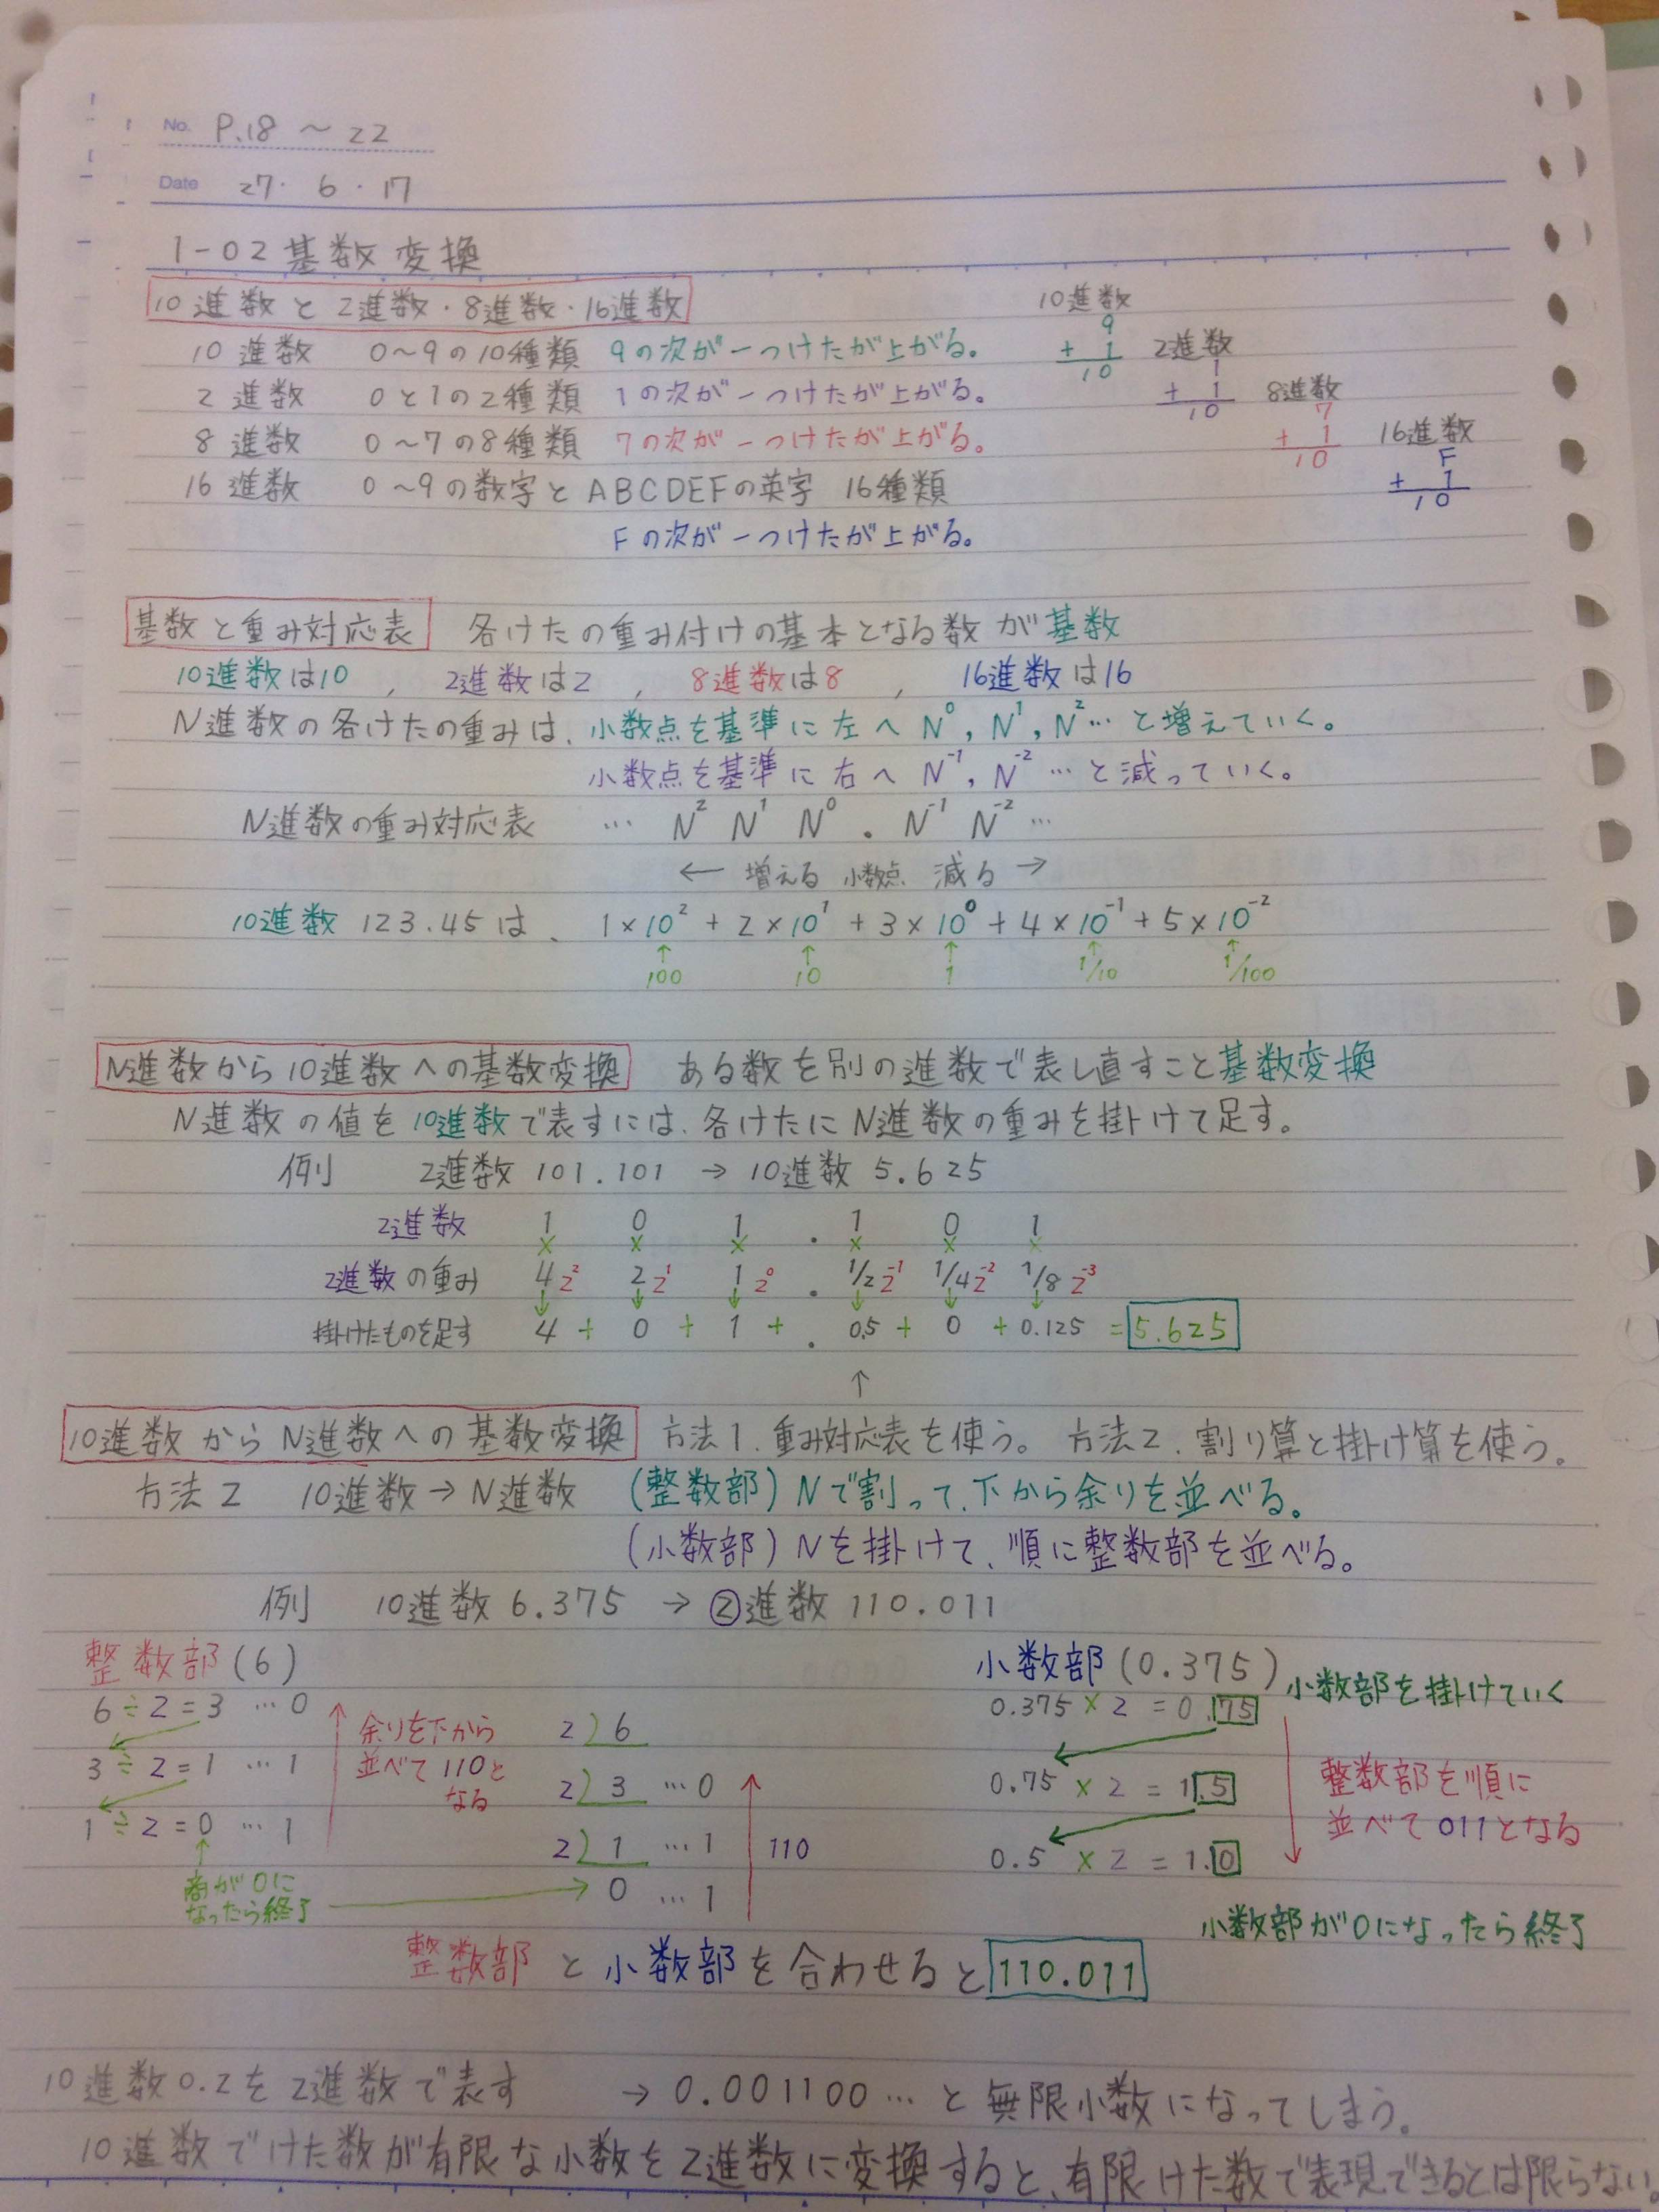 No. P.18 ～ 22
Date 27・6・17
1-02 基数変換
10進数と2進数・8進数・16進数
10進数 0～9の10種類 9の次が一つけたが上がる。
2進数 0と1の2種類 1の次が一つけたが上がる。
8進数 0～7の8種類 7の次が一つけたが上がる。
16進数 0～9の数字とABCDEFの英字 16種類
Fの次が一つけたが上がる。
10進数
9
+ 1
10
2進数
1
+ 1
10
8進数
7
+ 1
10
16進数
F
+ 1
10
基数と重み対応表 各けたの重み付けの基本となる数が基数
10進数は10 , 2進数は2 , 8進数は8 , 16進数は16
N進数の各けたの重みは、小数点を基準に左へ N⁰, N¹, N²… と増えていく。
小数点を基準に右へ N⁻¹, N⁻² … と減っていく。
N進数の重み対応表 … N² N¹ N⁰ . N⁻¹ N⁻² …
← 増える 小数点 減る →
10進数 123.45 は、 1×10² + 2×10¹ + 3×10⁰ + 4×10⁻¹ + 5×10⁻²
↑ ↑ ↑ ↑ ↑
100 10 1 1/10 1/100
N進数から10進数への基数変換 ある数を別の進数で表し直すこと基数変換
N進数の値を10進数で表すには、各けたにN進数の重みを掛けて足す。
例 2進数 101.101 → 10進数 5.625
2進数 1 0 1 . 1 0 1
× × × × × ×
2進数の重み 4 2² 2 2¹ 1 2⁰ . 1/2 2⁻¹ 1/4 2⁻² 1/8 2⁻³
↓ ↓ ↓ ↓ ↓ ↓
掛けたものを足す 4 + 0 + 1 + . 0.5 + 0 + 0.125 = 5.625
↑
10進数からN進数への基数変換 方法1. 重み対応表を使う。 方法2. 割り算と掛け算を使う。
方法2 10進数→N進数 (整数部) Nで割って、下から余りを並べる。
(小数部) Nを掛けて、順に整数部を並べる。
例 10進数 6.375 → ②進数 110.011
整数部(6)
6÷2=3 … 0
3÷2=1 … 1
1÷2=0 … 1
↑
商が0に
なったら終了
余りを下から
並べて110と
なる
2)6
2)3 … 0
2)1 … 1
0 … 1
110
小数部(0.375)
小数部を掛けていく
0.375 × 2 = 0.75
0.75 × 2 = 1.5
0.5 × 2 = 1.0
整数部を順に
並べて011となる
小数部が0になったら終了
整数部と小数部を合わせると110.011
10進数0.2を2進数で表す → 0.001100… と無限小数になってしまう。
10進数でけた数が有限な小数を2進数に変換すると、有限けた数で表現できるとは限らない。